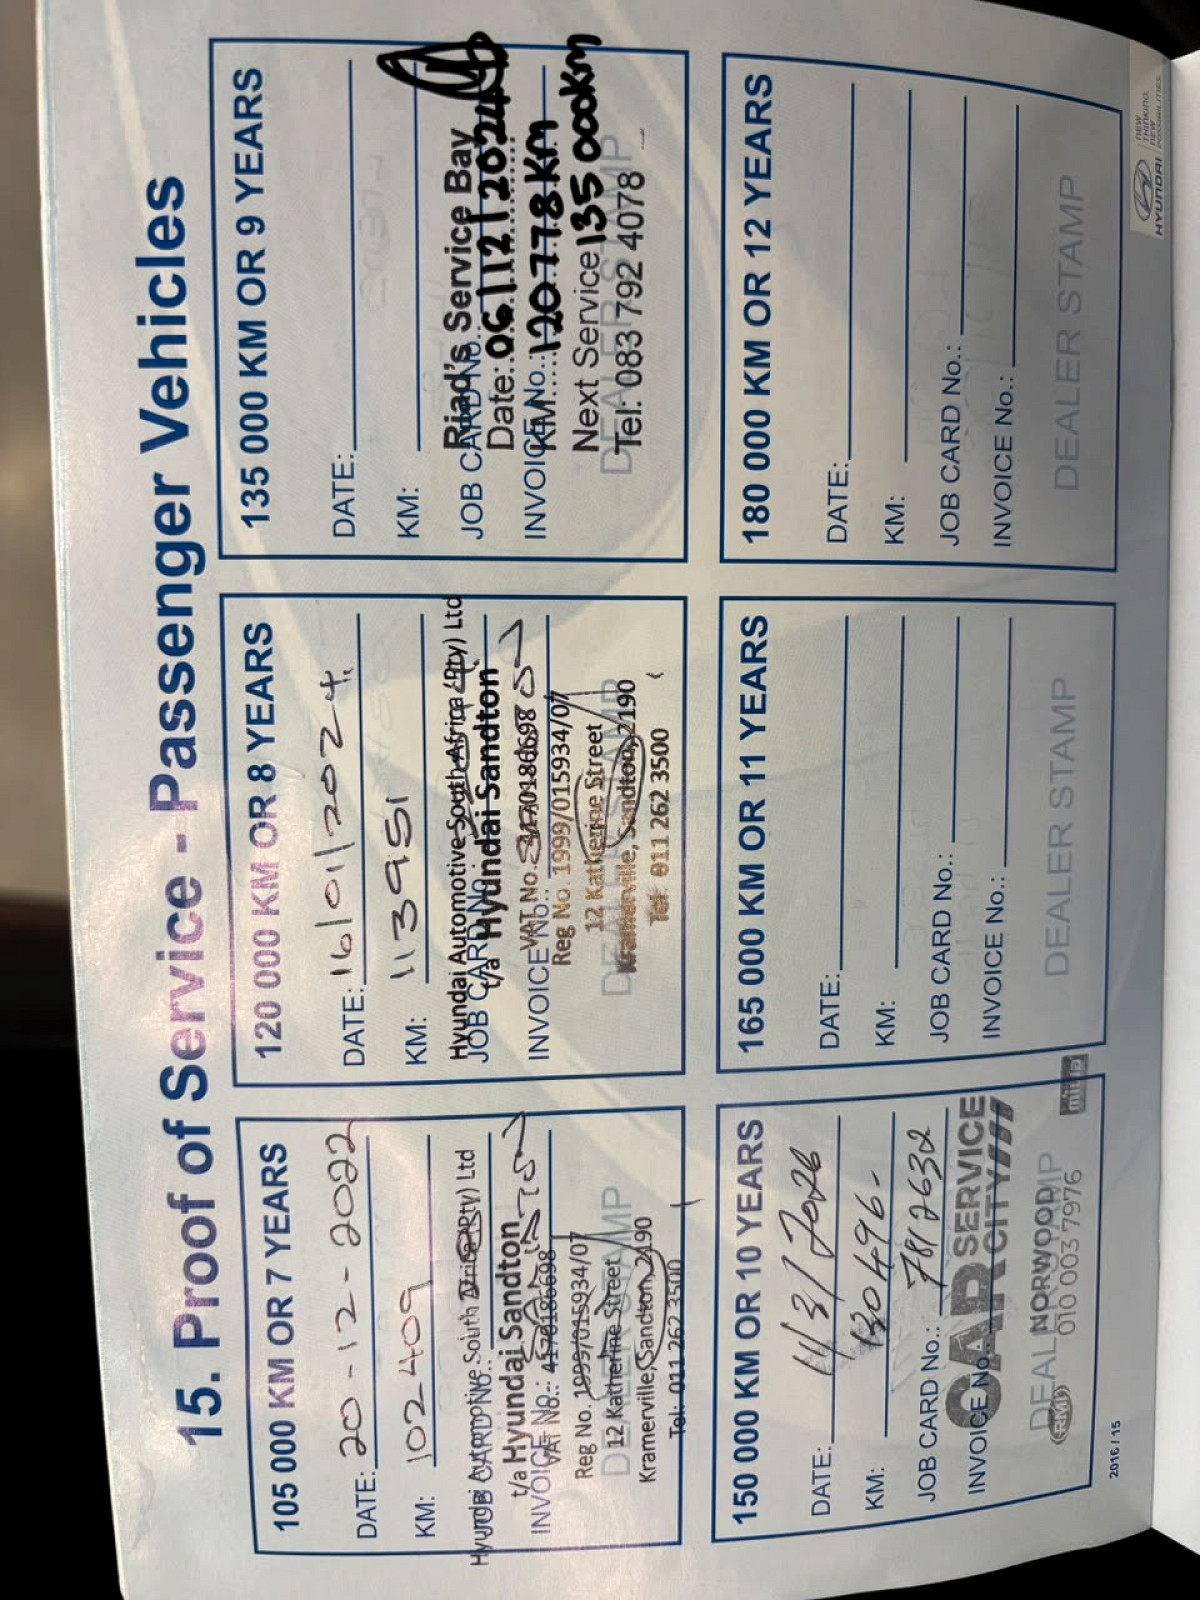 15. Proof of Service - Passenger Vehicles
105 000 KM OR 7 YEARS
DATE: 20-12-2022
KM: 102409
Hyundai Automotive South Africa (Pty) Ltd
JOB CARD No.:
t/a Hyundai Sandton
INVOICE No.:
VAT No. 4170186698
Reg No. 1999/015934/07
12 Katherine Street
DEALER STAMP
Kramerville, Sandton, 2190
Tel: 011 262 3500
120 000 KM OR 8 YEARS
DATE: 16/01/2024
KM: 113951
Hyundai Automotive South Africa (Pty) Ltd
JOB CARD No.:
t/a Hyundai Sandton
VAT No. 4170186698
INVOICE No.:
Reg No. 1999/015934/07
12 Katherine Street
DEALER STAMP
Kramerville, Sandton, 2190
Tel: 011 262 3500
135 000 KM OR 9 YEARS
DATE:
KM:
Riad's Service Bay
JOB CARD No.:
Date: 06/12/2024
INVOICE No.:
KM 120778 Km
Next Service 135 000Km
DEALER STAMP
Tel: 083 792 4078
150 000 KM OR 10 YEARS
DATE: 11/3/2026
KM: 130496-
JOB CARD No.: 7812632
INVOICE No.:
CAR SERVICE
CITY
DEALER STAMP
NORWOOD
RMI
010 003 7976
165 000 KM OR 11 YEARS
DATE:
KM:
JOB CARD No.:
INVOICE No.:
DEALER STAMP
180 000 KM OR 12 YEARS
DATE:
KM:
JOB CARD No.:
INVOICE No.:
DEALER STAMP
2016 / 15
HYUNDAI
NEW
THINKING.
NEW
POSSIBILITIES.